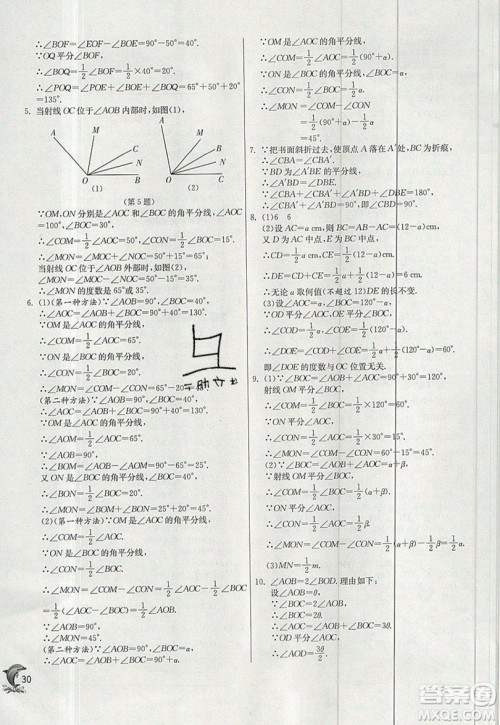 ∴∠BOF=∠EOF-∠BOE=90°-50°=40°.
∵OQ平分∠BOF,
∴∠BOQ=1/2∠BOF=1/2×40°=20°.
∴∠POQ=∠POE+∠BOE+∠BOQ=65°+50°+20°
=135°.
5. 当射线OC位于∠AOB内部时,如图(1),
A M C N B O
(1)
M A B N C O
(2)
(第5题)
∵OM,ON分别是∠AOC和∠BOC的角平分线,∠AOC=
100°,
∴∠COM=1/2∠AOC=50°,∠CON=1/2∠BOC=15°.
∴∠MON=∠COM+∠CON=65°.
当射线OC位于∠AOB外部时,如图(2),
∠MON=∠COM-∠CON=50°-15°=35°.
∴∠MON的度数是65°或35°.
6. (1)(第一种方法)∵∠AOB=90°,∠BOC=40°,
∴∠AOC=∠AOB+∠BOC=90°+40°=130°.
∵OM是∠AOC的平分线,
∴∠COM=1/2∠AOC=65°.
∵ON是∠BOC的角平分线,
∴∠CON=1/2∠BOC=20°.
∴∠MON=∠COM-∠CON=65°-20°=45°.
(第二种方法)∵∠AOB=90°,∠BOC=40°,
∴∠AOC=∠AOB+∠BOC=90°+40°=130°.
∵OM是∠AOC的平分线,
∴∠AOM=1/2∠AOC=65°.
∴∠BOM=∠AOB-∠AOM=90°-65°=25°.
又ON是∠BOC的角平分线,
∴∠BON=1/2∠BOC=20°.
∴∠MON=∠BOM+∠BON=25°+20°=45°.
(2)(第一种方法)∵OM是∠AOC的角平分线,
∴∠COM=1/2∠AOC.
∵ON是∠BOC的角平分线,
∴∠CON=1/2∠BOC.
∴∠MON=∠COM-∠CON=1/2∠AOC-1/2∠BOC
=1/2(∠AOC-∠BOC)=1/2∠AOB.
∵∠AOB=90°,
∴∠MON=45°.
(第二种方法)∵∠AOB=90°,∠BOC=α,
30
∴∠AOC=∠AOB+∠BOC=90°+α.
∵OM是∠AOC的角平分线,
∴∠COM=1/2∠AOC=1/2(90°+α).
∵ON是∠BOC的角平分线,
∴∠CON=1/2∠BOC=1/2α.
∴∠MON=∠COM-∠CON=1/2(90°+α)-1/2α
=45°.
7. 把书面斜折过去,使顶点A落在A′处,BC为折痕,
∴∠CBA=∠CBA′=1/2∠ABA′.
∵BD为∠A′BE的平分线,
∴∠A′BD=1/2∠A′BE.
∴∠CBD=∠CBA′+∠A′BD=1/2∠ABA′+1/2∠A′BE
8. (1)6 6
(2)设AC=a cm,则BC=AB-AC=(12-a)cm.
又D为AC中点,E为BC中点,
∴CD=1/2a cm,CE=1/2(12-a)cm.
∴DE=CD+CE=1/2a+1/2(12-a)=6 cm.
∴无论a取何值(不超过12)DE的长不变.
(3)∵OD平分∠AOC,OE平分∠BOC,
∴∠COD=1/2∠AOC,∠COE=1/2∠BOC.
∴∠DOE=∠COD+∠COE=1/2(∠AOC+∠BOC)
=1/2∠AOB=60°.
即∠DOE的度数与OC位置无关.
9. (1)∵∠AOB=90°,∠BOC=30°,
射线OM平分∠AOC,
∴∠COM=1/2∠AOC=1/2×120°=60°.
∵ON平分∠BOC,
∴∠CON=1/2∠BOC=1/2×30°=15°.
∴∠MON=∠COM-∠CON=45°.
(2)∵∠AOB=α,∠BOC=β,∴∠AOC=α+β.
∵射线OM平分∠AOC,
∴∠COM=1/2∠AOC=1/2(α+β).
∵ON平分∠BOC,
∴∠CON=1/2∠BOC=1/2β.
∴∠MON=∠COM-∠CON=1/2α.
(3)MN=1/2m.
10. ∠AOB=2∠BOD. 理由如下:
设∠BOC=θ.
∴∠AOB=2∠BOC=2θ.
∴∠AOC=∠AOB+∠BOC=3θ.
又OD平分∠AOC,
∴∠AOD=1/2∠AOC=3θ/2.
答案圈
MXQE.COM